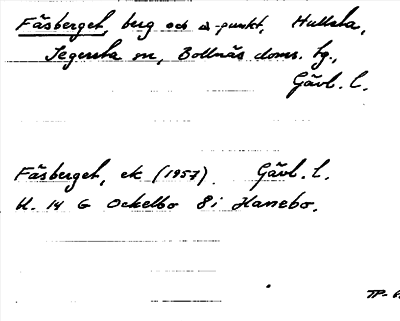 Fäsberget, berg och Δ-punkt, Hullsta,
Segersta sn, Bollnäs doms. tg.,
Gävl. l.
Fäsberget, ek (1957). Gävl. l.
bl. 14 G Ockelbo 8 i Hanebo.
TP-